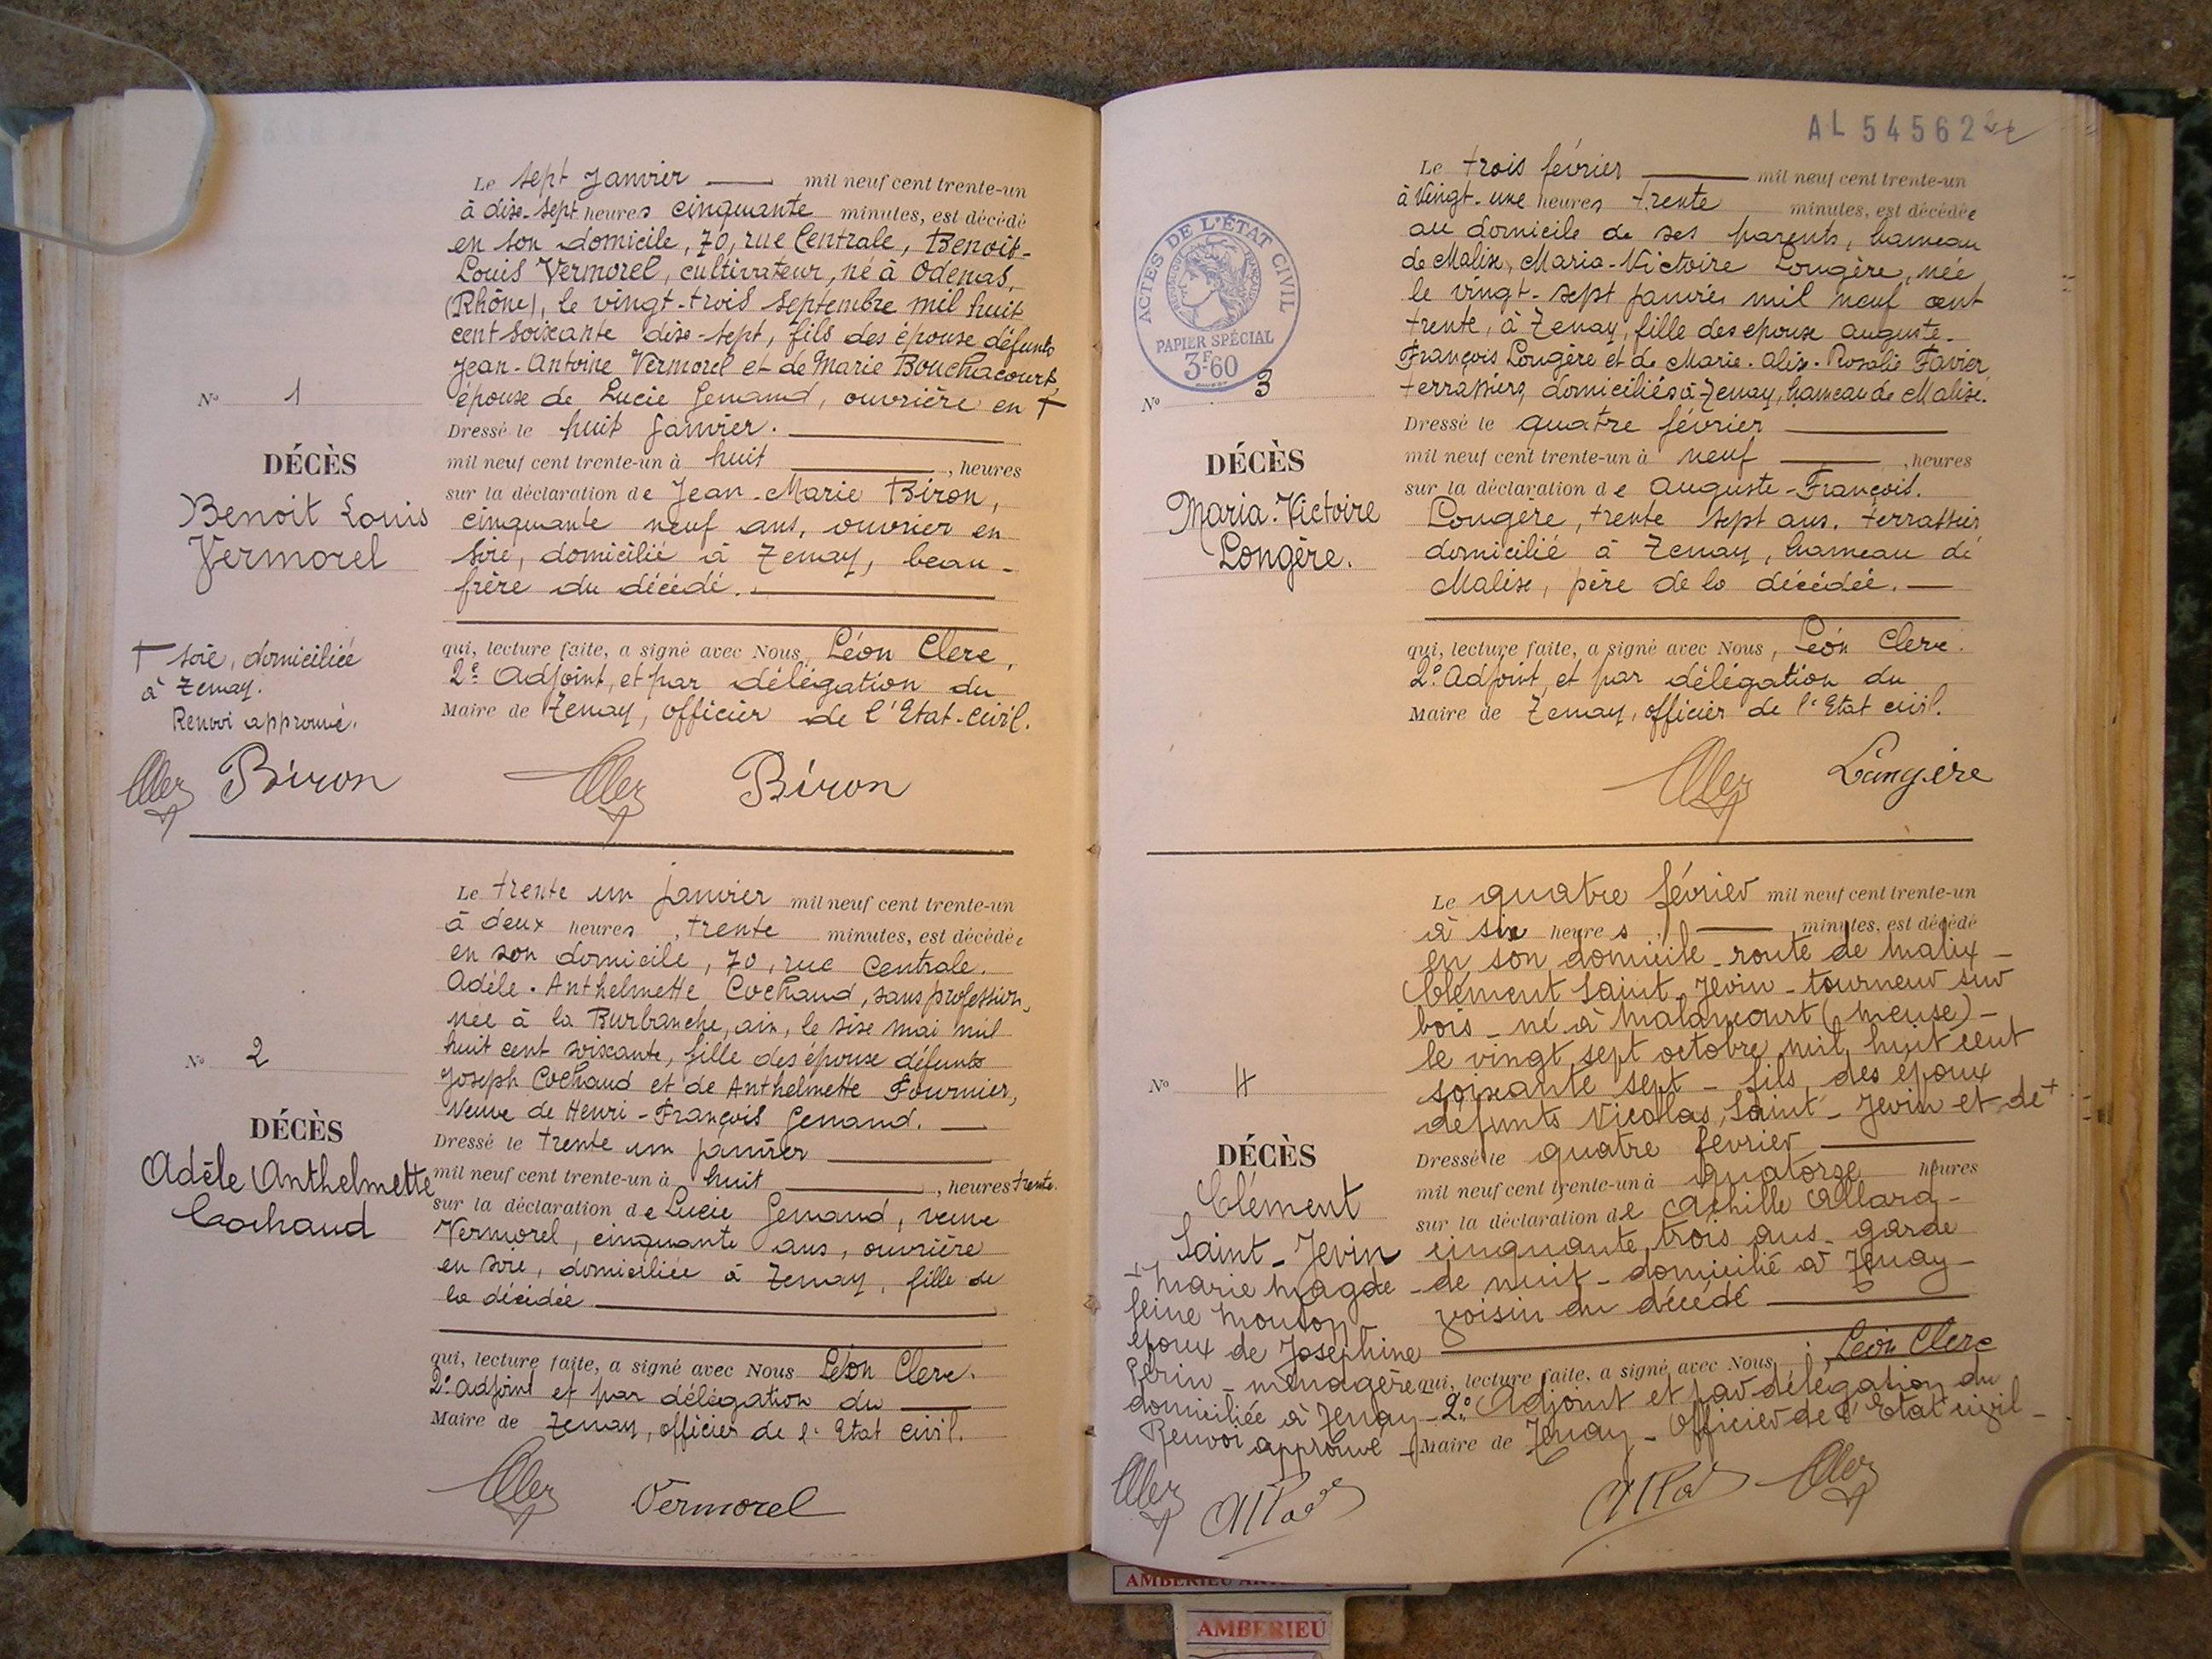 Le sept Janvier mil neuf cent trente-un
à dix-sept heures cinquante minutes, est décédé
en son domicile, 70, rue Centrale, Benoit-
Louis Vermorel, cultivateur, né à Odenas,
(Rhône), le vingt-trois septembre mil huit
cent soixante dix-sept, fils des époux défunts
Jean-Antoine Vermorel et de Marie Bouchacourt,
époux de Lucie Genand, ouvrière en †
N° 1
DÉCÈS
Benoit Louis
Vermorel
Dressé le huit Janvier.
mil neuf cent trente-un à huit , heures
sur la déclaration de Jean-Marie Biron,
cinquante neuf ans, ouvrier en
soie, domicilié à Tenay, beau-
frère du décédé.
† soie, domiciliée
à Tenay.
Renvoi approuvé.
qui, lecture faite, a signé avec Nous, Léon Clerc,
2e Adjoint, et par délégation du
Maire de Tenay, officier de l'Etat-civil.
Biron
Biron
Le trente un janvier mil neuf cent trente-un
à deux heures trente minutes, est décédée
en son domicile, 70, rue Centrale.
Adèle-Anthelmette Cochaud, sans profession,
née à la Burbanche, ain, le six mai mil
huit cent soixante, fille des époux défunts
Joseph Cochaud et de Anthelmette Fournier,
Veuve de Henri-François Genand.
N° 2
DÉCÈS
Adèle Anthelmette
Cochaud
Dressé le trente un janvier
mil neuf cent trente-un à huit , heures trente.
sur la déclaration de Lucie Genand, veuve
Vermorel, cinquante ans, ouvrière
en soie, domiciliée à Tenay, fille de
la décédée
qui, lecture faite, a signé avec Nous Léon Clerc.
2e adjoint et par délégation du
Maire de Tenay, officier de l'Etat civil.
Vermorel
AL 545622
ACTES DE L'ÉTAT CIVIL
RÉPUBLIQUE FRANÇAISE
PAPIER SPÉCIAL
3F60
Le trois février mil neuf cent trente-un
à Vingt-une heures trente minutes, est décédée
au domicile de ses parents, hameau
de Malix, Maria-Victoire Longère, née
le vingt-sept janvier mil neuf cent
trente, à Tenay, fille des époux Auguste-
François Longère et de Marie-Alix-Rosalie Favier
terrassiers, domiciliés à Tenay, hameau de Malix.
N° 3
DÉCÈS
Maria-Victoire
Longère.
Dressé le quatre février
mil neuf cent trente-un à neuf , heures
sur la déclaration de Auguste-François.
Longère, trente sept ans, terrassier
domicilié à Tenay, hameau de
Malix, père de la décédée.
qui, lecture faite, a signé avec Nous, Léon Clerc.
2e Adjoint, et par délégation du
Maire de Tenay, officier de l'Etat civil.
Longère
Le quatre février mil neuf cent trente-un
à six heures minutes, est décédé
en son domicile - route de malix -
Clément Saint-Jevin - tourneur sur
bois - né à Malancourt (Meuse) -
le vingt sept octobre mil huit cent
soixante sept - fils des époux
défunts Nicolas Saint-Jevin et de +
N° 4
DÉCÈS
Clément
Saint-Jevin
Dressé le quatre février
mil neuf cent trente-un à quatorze heures
sur la déclaration de Achille Allard -
cinquante trois ans - garde
de nuit - domicilié à Tenay -
voisin du décédé
+ Marie Magde
leine Mouton -
époux de Joséphine
Périn - ménagère
domiciliée à Tenay -
Renvoi approuvé
qui, lecture faite, a signé avec Nous, Léon Clerc
2e Adjoint et par délégation du
Maire de Tenay - Officier de l'Etat civil -
AMBERIEU